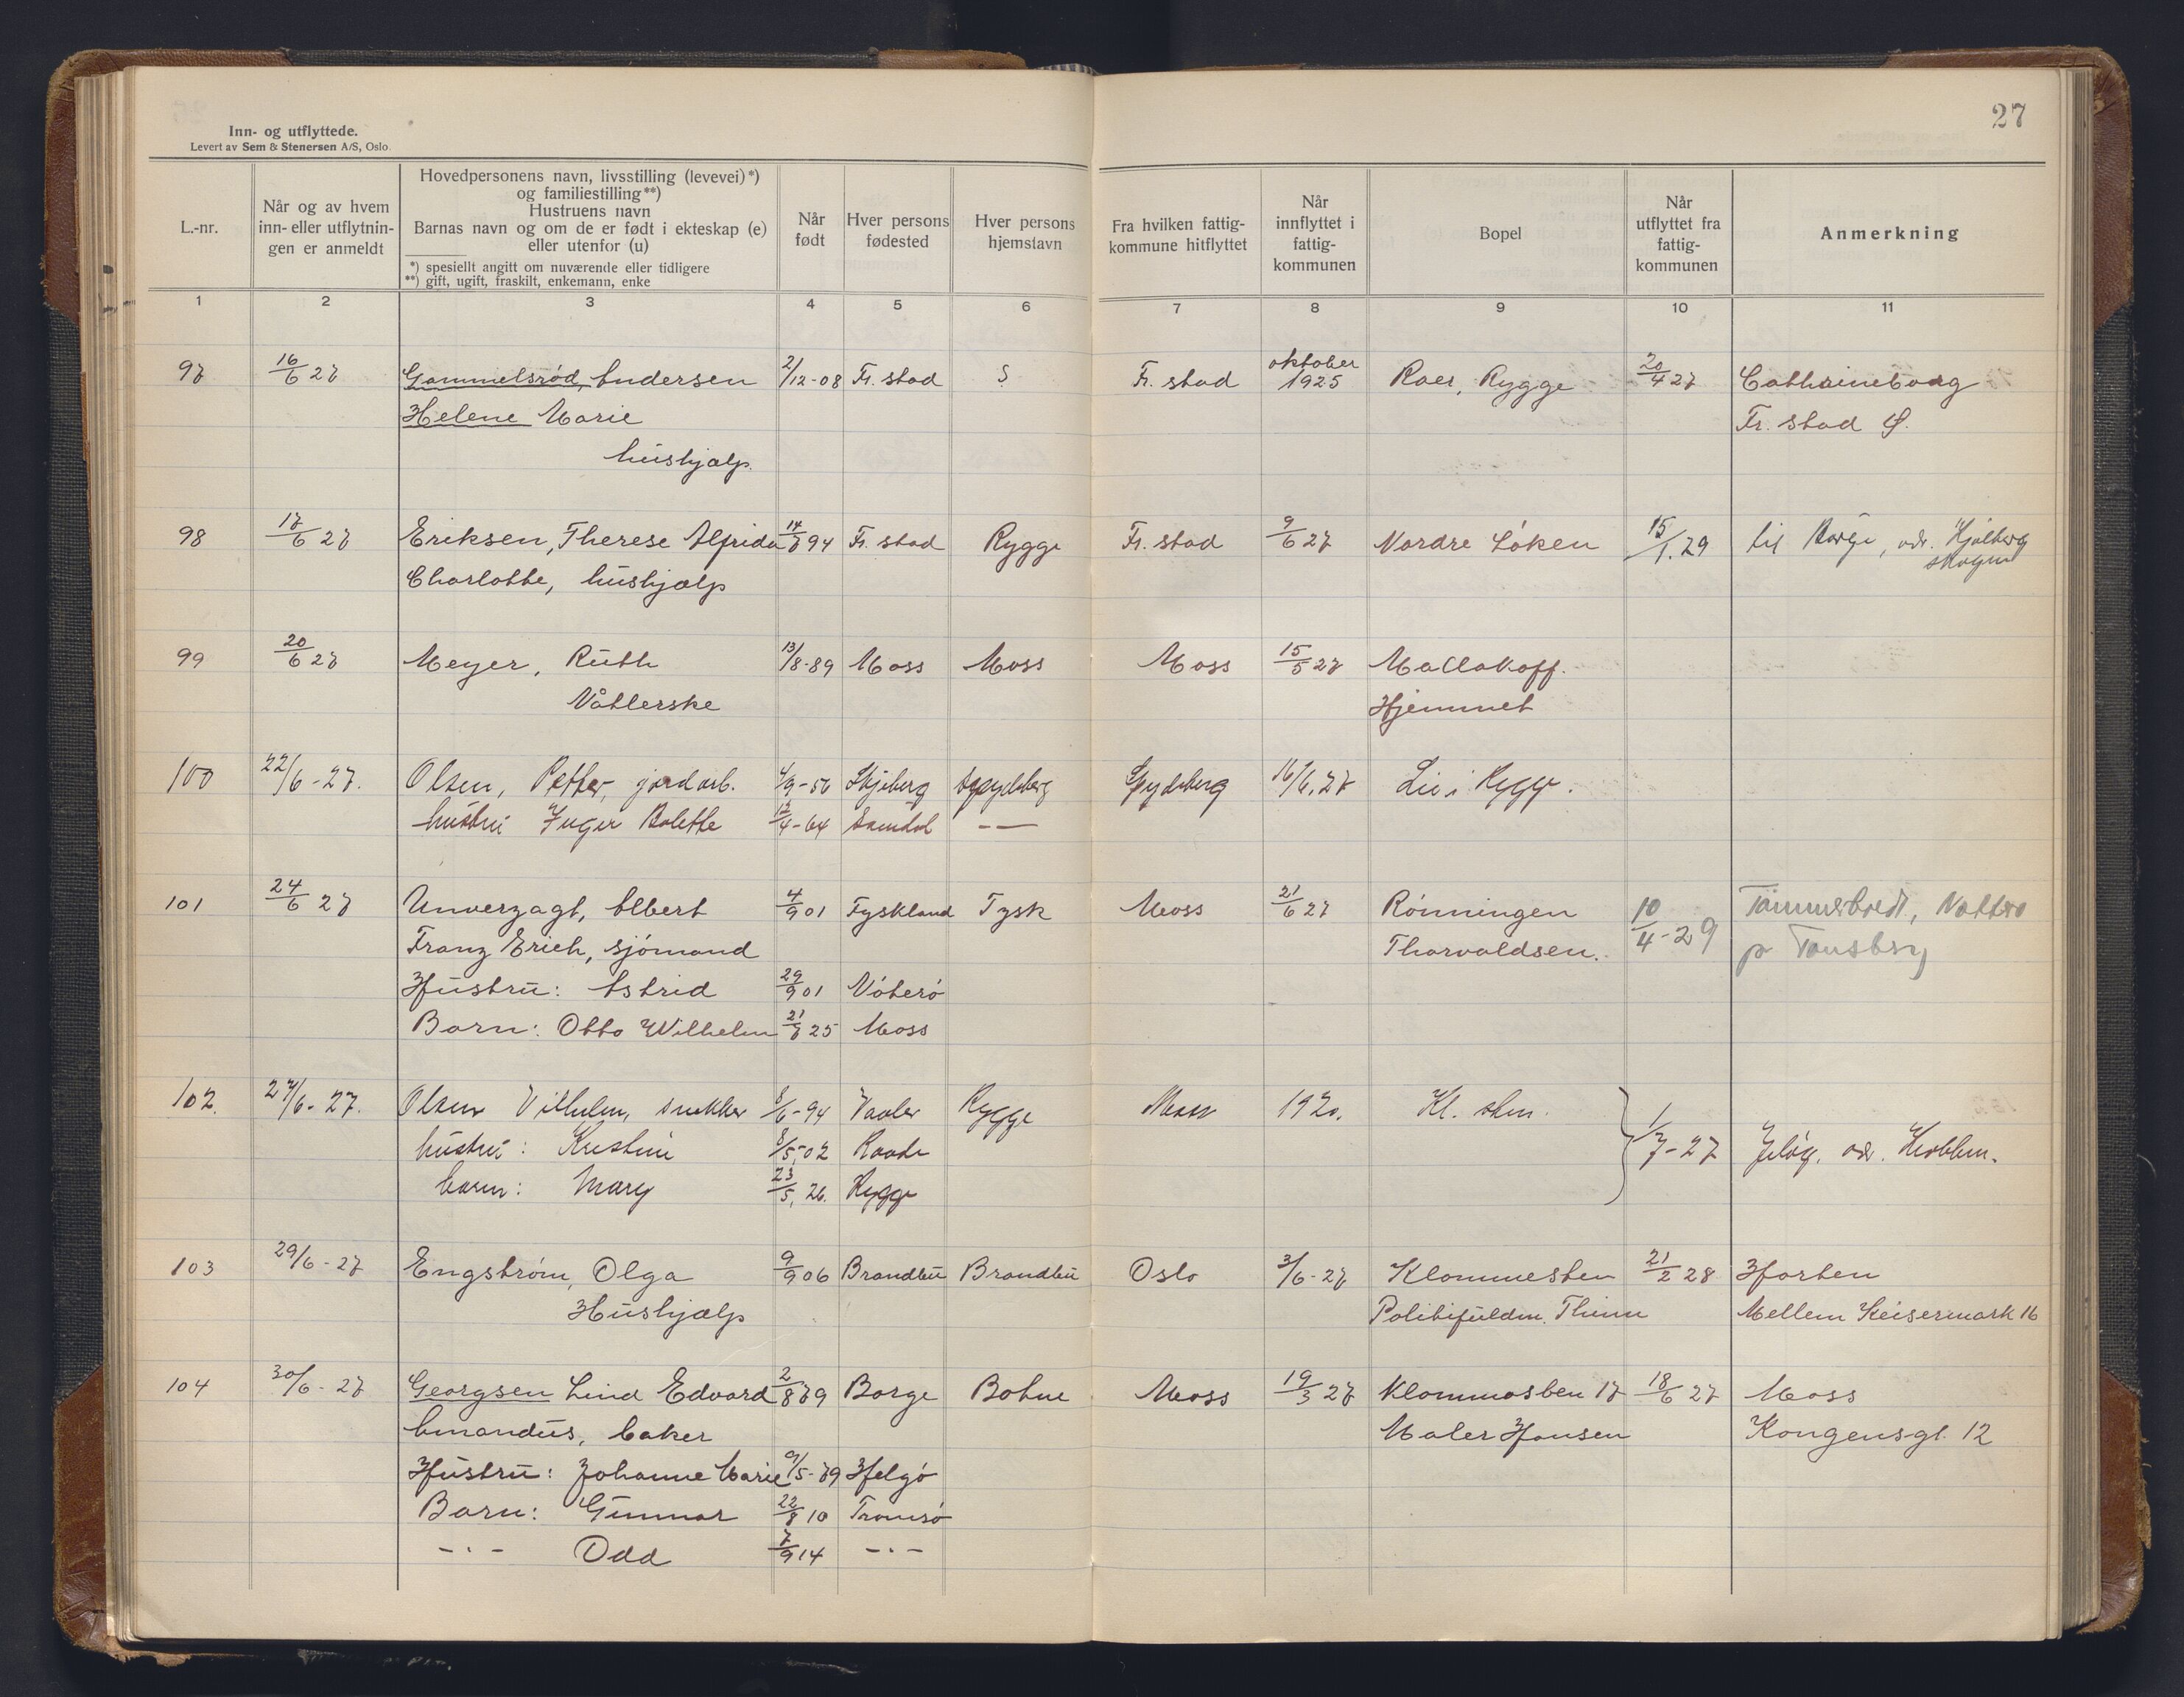 27
Inn- og utflyttede.
Levert av Sem & Stenersen A/S, Oslo.
L.-nr.
Når og av hvem inn- eller utflytnin- gen er anmeldt
Hovedpersonens navn, livsstilling (levevei)*)
og familiestilling**)
Hustruens navn
Barnas navn og om de er født i ekteskap (e)
eller utenfor (u)
*) spesielt angitt om nuværende eller tidligere
**) gift, ugift, fraskilt, enkemann, enke
Når født
Hver persons fødested
Hver persons hjemstavn
Fra hvilken fattig- kommune hitflyttet
Når innflyttet i fattig- kommunen
Bopel
Når utflyttet fra fattig- kommunen
Anmerkning
1 2 3 4 5 6 7 8 9 10 11
97 16/6 27 Gammelsrød, Andersen 2/12-08 Fr. stad S Fr. stad oktober 1925 Roer, Rygge 20/4 27 Cathrineborg
Helene Marie Fr. stad Ø.
hushjælp.
98 17/6 27 Eriksen, Therese Alfrida 94 Fr. stad Rygge Fr. stad 9/6 27 Nordre Løken 15/1.29 til Borge, adr. Hjelberg
Charlotte, hushjælp skogen
99 20/6 27 Meyer, Ruth 13/8-89 Moss Moss Moss 15/5 27 Mallakoff.
Våtlerske Hjemmet
100 22/6-27. Olsen, Petter, jordarb. 4/9-56 Skjeberg Spydeberg Spydeberg 16/6.27 Lie i Rygge.
hustru Inger Bolette 12/4-64 — —
101 24/6 27 Unverzagt, Albert 4/9 01 Tyskland Tysk Moss 21/6 27 Rønningen 10/4-29 Tømmerbredt, Nøtterø
Franz Erich, sjømand Thorvaldsen. p Tønsberg
Hustru: Astrid 29/9 01 Nøterø
Barn: Otto Wilhelm 21/8 25 Moss
102. 27/6-27. Olsen Vilhelm, snekker 8/6-94 Vaaler Rygge Moss 1920. Kl. sten. 1/7-27 Jeløy, adr. Kubben.
hustru: Kristine 8/5-02 Raade
barn: Mary 23/5, 26. Rygge
103 29/6-27 Engstrøm, Olga 9/9 06 Brandbu Brandbu Oslo 3/6-27 Klommesten 21/2 28 Horten
Hushjælp Politifuldm. Thime Mellem Keisermark 16
104 30/6-27 Georgsen Lind Edvard 2/8 79 Borge Botne Moss 19/3 27 Klommesten 17 18/6 27 Moss
Amandus, baker Maler Hansen Kongensgt. 12
Hustru: Johanne Marie 9/5-79 Helgø
Barn: Gunnar 22/8 10 Tromsø
-"- Odd 7/9 14 -"-